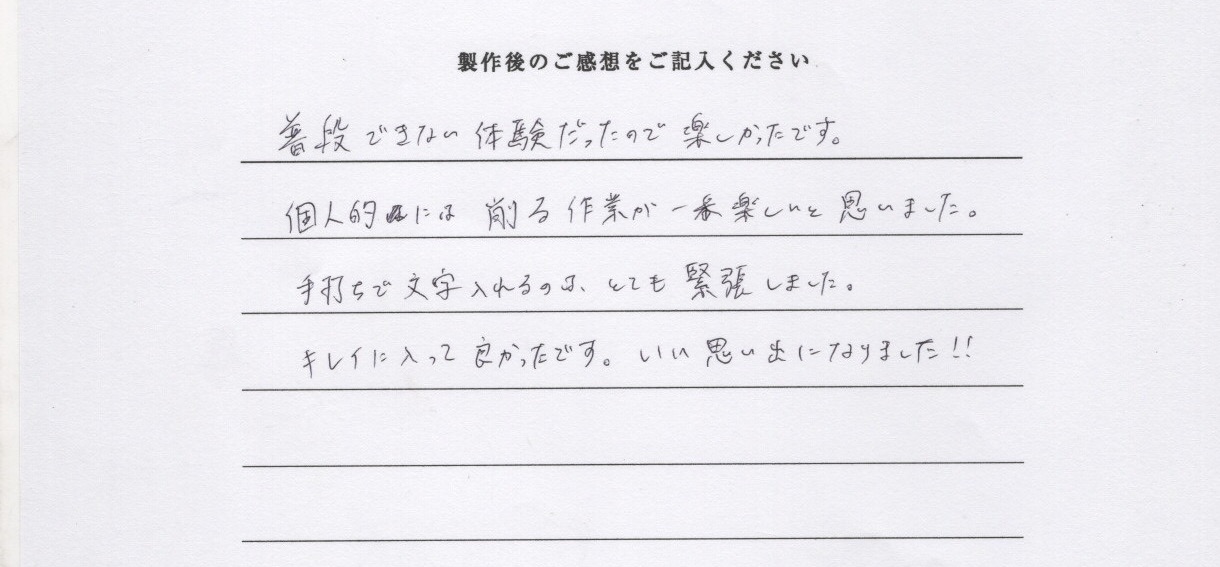 製作後のご感想をご記入ください
普段できない体験だったので楽しかったです。
個人的には削る作業が一番楽しいと思いました。
手打ちで文字入れるのは、とても緊張しました。
キレイに入って良かったです。いい思い出になりました!!